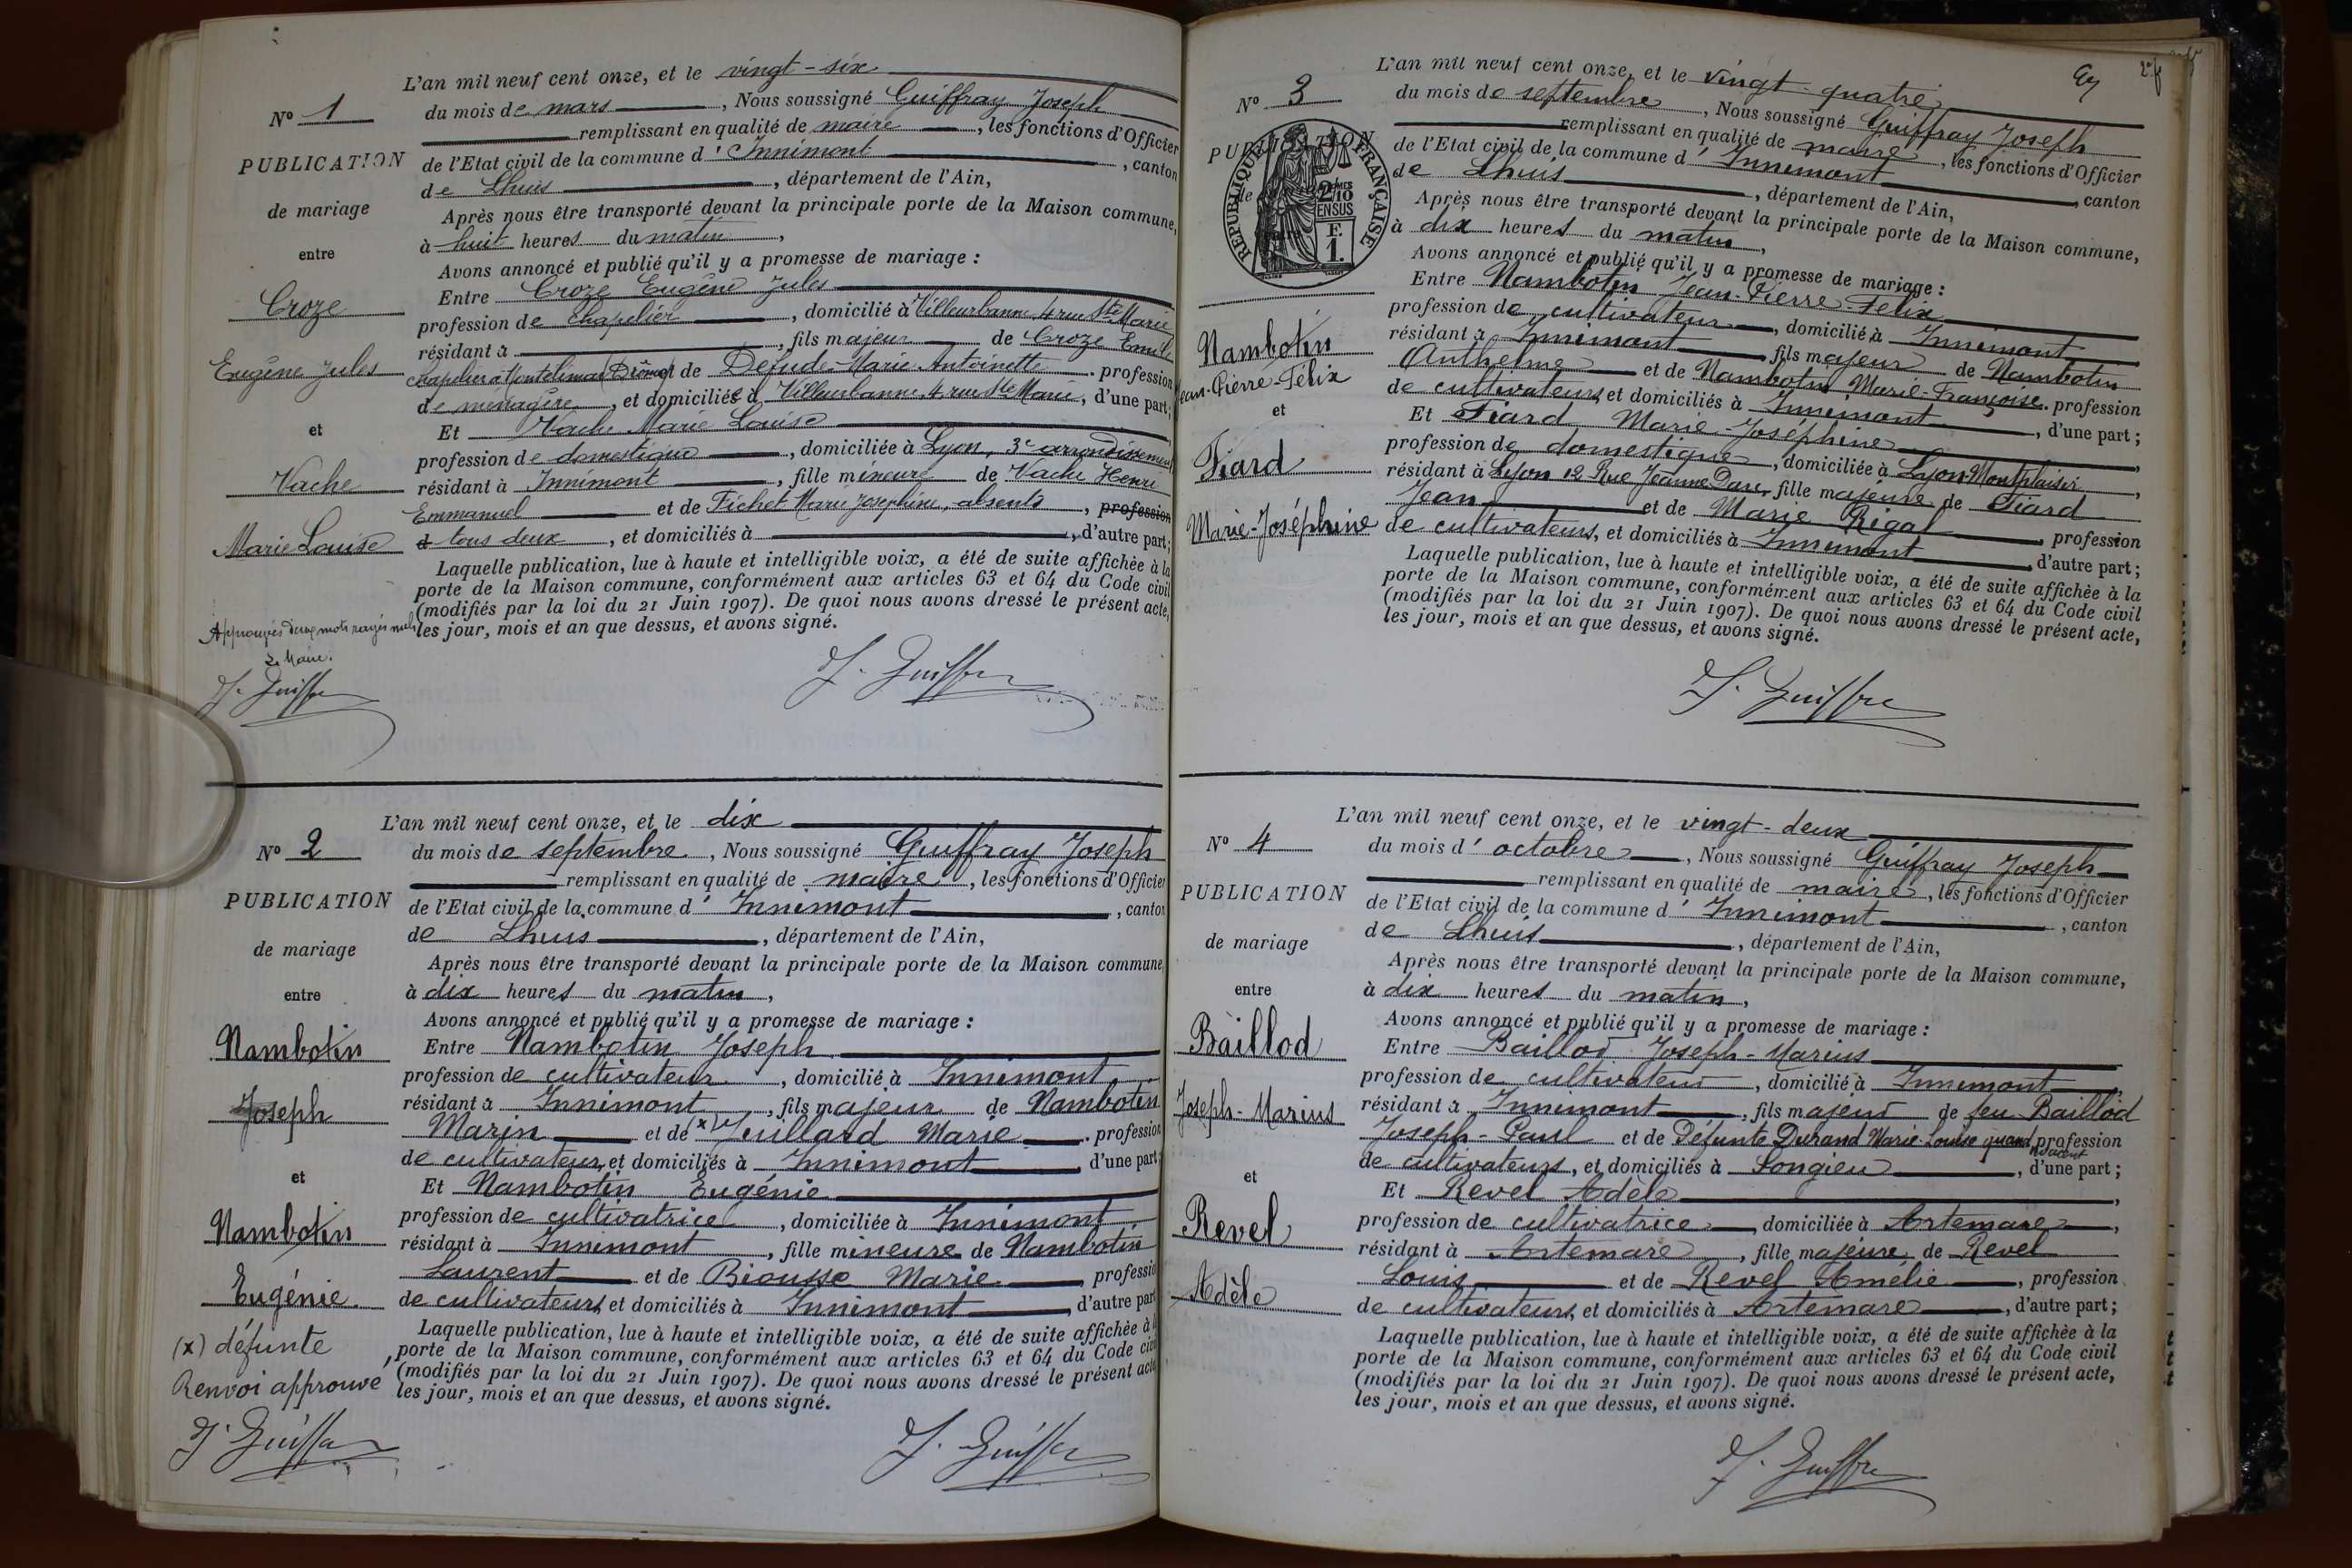 L'an mil neuf cent onze, et le vingt-six
N° 1
du mois de mars, Nous soussigné Guiffray Joseph
remplissant en qualité de maire, les fonctions d'Officier
PUBLICATION
de l'Etat civil de la commune d'Innimont, canton
de Lhuis, département de l'Ain,
de mariage
Après nous être transporté devant la principale porte de la Maison commune,
à huit heures du matin,
entre
Avons annoncé et publié qu'il y a promesse de mariage :
Croze
Entre Croze Eugène Jules
profession de chapelier, domicilié à Villeurbanne, 4 rue Ste Marie
résidant à, fils majeur de Croze Emile
Eugène Jules
chapelier à Montélimar (Drôme) et de Marie Antoinette profession
de ménagère, et domiciliés à Villeurbanne, 4 rue Ste Marie, d'une part;
et
Et Vache Marie Louise
profession de domestique, domiciliée à Lyon, 3e arrondissement
Vache
résidant à Innimont, fille mineure de Vache Henri
Emmanuel et de Fichet Marie Josephine, absents, profession
Marie Louise
d tous deux, et domiciliés à, d'autre part;
Laquelle publication, lue à haute et intelligible voix, a été de suite affichée à la
porte de la Maison commune, conformément aux articles 63 et 64 du Code civil
(modifiés par la loi du 21 Juin 1907). De quoi nous avons dressé le présent acte,
les jour, mois et an que dessus, et avons signé.
Approuvés deux mots rayés nuls
Le Maire.
J. Guiffre
J. Guiffre
L'an mil neuf cent onze, et le dix
N° 2
du mois de septembre, Nous soussigné Guiffray Joseph
remplissant en qualité de maire, les fonctions d'Officier
PUBLICATION
de l'Etat civil de la commune d'Innimont, canton
de Lhuis, département de l'Ain,
de mariage
Après nous être transporté devant la principale porte de la Maison commune
entre
à dix heures du matin,
Avons annoncé et publié qu'il y a promesse de mariage :
Nambotin
Entre Nambotin Joseph
profession de cultivateur, domicilié à Innimont
Joseph
résidant à Innimont, fils majeur de Nambotin
Marin et de (x) Juillard Marie. profession
de cultivateurs, et domiciliés à Innimont d'une part;
et
Et Nambotin Eugénie
profession de cultivatrice, domiciliée à Innimont
Nambotin
résidant à Innimont, fille mineure de Nambotin
Laurent et de Biousse Marie profession
Eugénie.
de cultivateurs, et domiciliés à Innimont, d'autre part
(x) défunte
Laquelle publication, lue à haute et intelligible voix, a été de suite affichée à la
porte de la Maison commune, conformément aux articles 63 et 64 du Code civil
Renvoi approuvé
(modifiés par la loi du 21 Juin 1907). De quoi nous avons dressé le présent acte
les jour, mois et an que dessus, et avons signé.
J. Guiffre
J. Guiffre
2e f
L'an mil neuf cent onze, et le vingt-quatre
N° 3
du mois de septembre, Nous soussigné Guiffray Joseph
remplissant en qualité de maire, les fonctions d'Officier
PUBLICATION
de l'Etat civil de la commune d'Innimont, canton
de Lhuis, département de l'Ain,
de
RÉPUBLIQUE FRANÇAISE
2/10
EN SUS
F.
1.
Après nous être transporté devant la principale porte de la Maison commune,
à dix heures du matin,
Avons annoncé et publié qu'il y a promesse de mariage :
Entre Nambotin Jean-Pierre-Félix
profession de cultivateur, domicilié à Innimont
Nambotin
résidant à Innimont fils majeur de Nambotin
Jean-Pierre-Félix
Anthelme et de Nambotin Marie-Françoise. profession
de cultivateurs, et domiciliés à Innimont, d'une part;
et
Et Fiard Marie-Joséphine
profession de domestique, domiciliée à Lyon-Montplaisir
Fiard
résidant à Lyon 12 Rue Jeanne Darc, fille majeure de Fiard
Jean et de Marie Rigal, profession
Marie-Joséphine
de cultivateurs, et domiciliés à Innimont, d'autre part;
Laquelle publication, lue à haute et intelligible voix, a été de suite affichée à la
porte de la Maison commune, conformément aux articles 63 et 64 du Code civil
(modifiés par la loi du 21 Juin 1907). De quoi nous avons dressé le présent acte,
les jour, mois et an que dessus, et avons signé.
J. Guiffre
L'an mil neuf cent onze, et le vingt-deux
N° 4
du mois d'octobre, Nous soussigné Guiffray Joseph
remplissant en qualité de maire, les fonctions d'Officier
PUBLICATION
de l'Etat civil de la commune d'Innimont, canton
de Lhuis, département de l'Ain,
de mariage
Après nous être transporté devant la principale porte de la Maison commune,
entre
à dix heures du matin,
Avons annoncé et publié qu'il y a promesse de mariage :
Baillod
Entre Baillod Joseph-Marius
profession de cultivateur, domicilié à Innimont
Joseph-Marius
résidant à Innimont, fils majeur de feu Baillod
Joseph-Paul et de Défunte Durand Marie-Louise quand vivaient profession
de cultivateurs, et domiciliés à Songieu, d'une part;
et
Et Revel Adèle,
profession de cultivatrice, domiciliée à Artemare,
Revel
résidant à Artemare, fille majeure de Revel
Louis et de Revel Amélie, profession
Adèle
de cultivateurs, et domiciliés à Artemare, d'autre part;
Laquelle publication, lue à haute et intelligible voix, a été de suite affichée à la
porte de la Maison commune, conformément aux articles 63 et 64 du Code civil
(modifiés par la loi du 21 Juin 1907). De quoi nous avons dressé le présent acte,
les jour, mois et an que dessus, et avons signé.
J. Guiffre